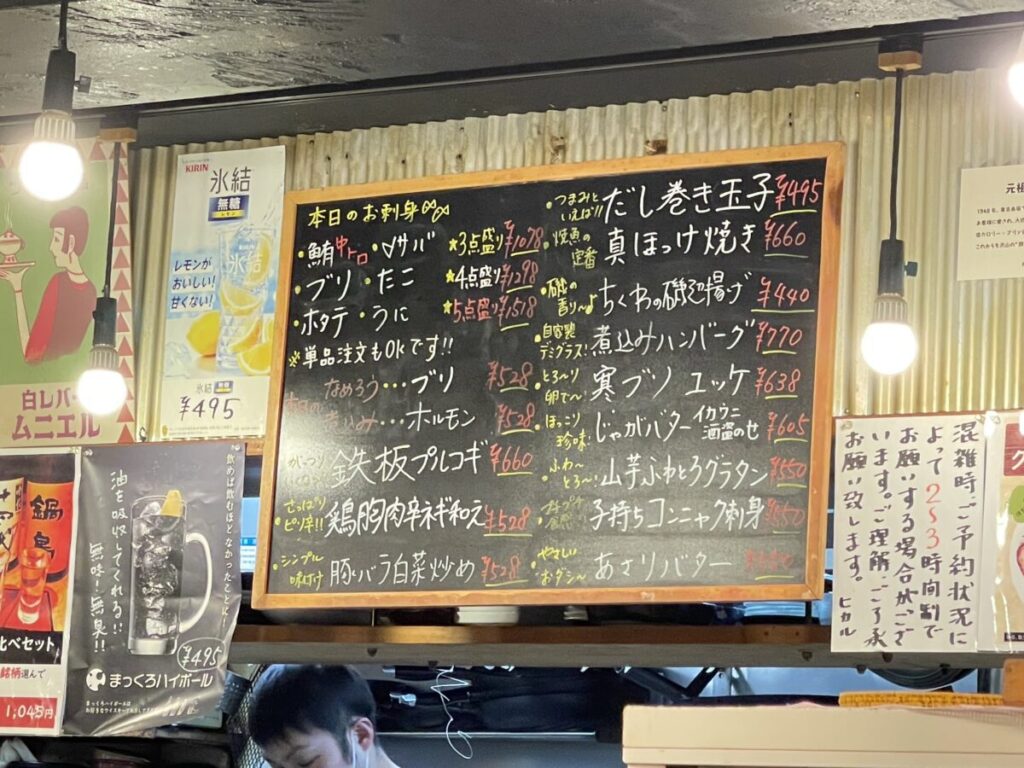 白レバー
ムニエル
KIRIN
氷結
無糖
レモン
レモンが
おいしい!
甘くない!
氷結 無糖
¥495
鍋島
べセット
銘柄選んで
1,045円
飲めば飲むほどなかったことに
油を吸収してくれる!!
無味・無臭!!
¥495
まっくろハイボール
まっくろハイボールは
本日のお刺身
・鮪中トロ ・〆サバ
・ブリ ・たこ
・ホタテ ・うに
★3点盛り ¥1078
★4点盛り ¥1298
★5点盛り ¥1518
※単品注文もOKです!!
なめろう…ブリ ¥528
煮込み…ホルモン ¥528
鉄板プルコギ ¥660
・さっぱりピリ辛!! 鶏胸肉辛ネギ和え ¥528
・シンプル味付け 豚バラ白菜炒め ¥528
・つまみといえば!! だし巻き玉子 ¥495
・焼魚の定番 真ほっけ焼き ¥660
・磯の香り〜♪ ちくわの磯辺揚げ ¥440
・自家製デミグラス! 煮込みハンバーグ ¥770
・とろ〜り卵で〜 寒ブリユッケ ¥638
・ほっこり珍味 じゃがバターイカウニ酒盗のせ ¥605
・ふわ〜とろ〜! 山芋ふわとろグラタン ¥550
子持ちコンニャク刺身 ¥550
・やさしいおダシ〜 あさりバター
混雑時、ご予約状況に
よって2〜3時間制で
お願いする場合がござ
います。ご理解、ご了承
お願い致します。
ヒカル
元祖